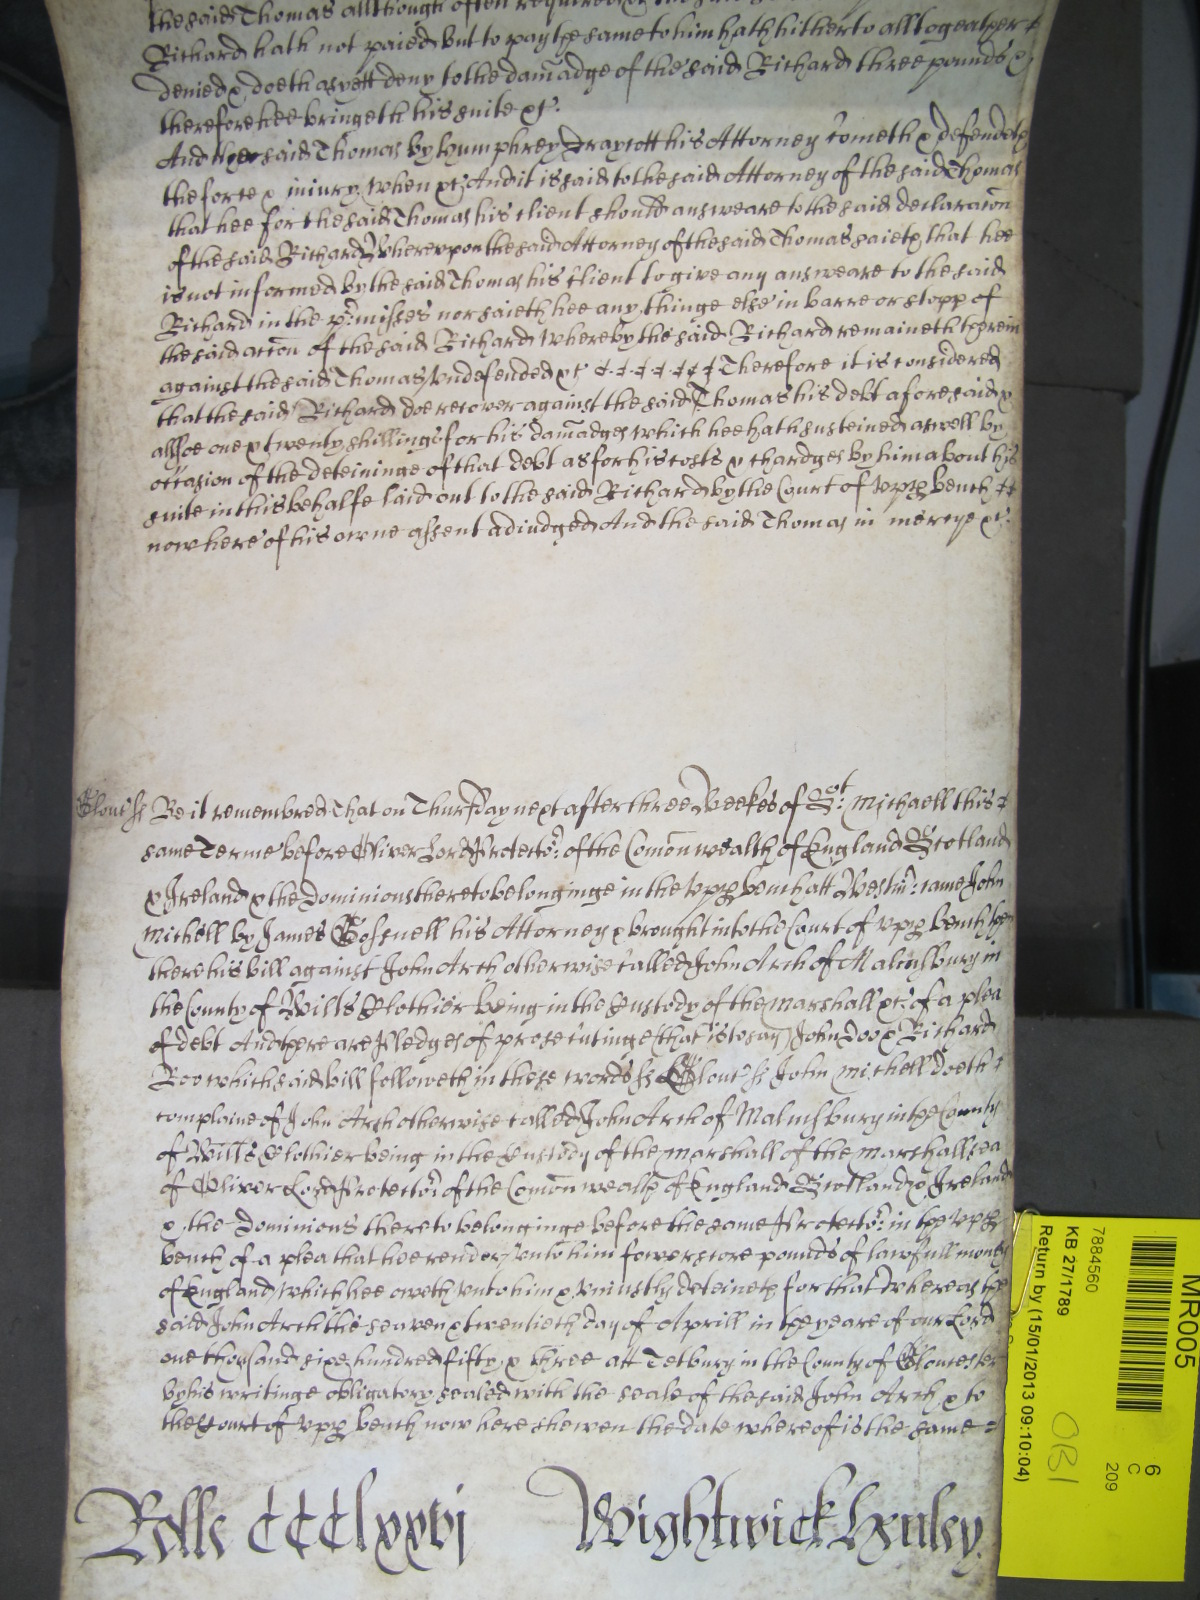 the said Thomas allthough often required
Richard hath not paied but to pay the same to him hath hitherto alltogeather
denied & doeth as yett deny to the damadge of the said Richard three pounds &
therefore hee bringeth his suite &c.
And the said Thomas by Humphrey Draycott his Attorney cometh & defendeth
the force & iniury when &c And it is said to the said Attorney of the said Thomas
that hee for the said Thomas his client should answeare to the said declaracon
of the said Richard Wherevpon the said Attorney of the said Thomas saieth that hee
is not informed by the said Thomas his Client to give any answeare to the said
Richard in the p'misses nor saieth hee any thinge else in barre or stopp of
the said accon of the said Richard whereby the said Richard remaineth therein
against the said Thomas vndefended &c Therefore it is considered
that the said Richard doe recover against the said Thomas his debt aforesaid &
allsoe one & twenty shillings for his damadges which hee hath susteined aswell by
occasion of the deteininge of that debt as for his costs & chardges by him about his
suite in this behalfe laid out to the said Richard by the Court of vpp bench
now here of his owne assent adiudged And the said Thomas in mercye &c.
Glouc' ss Be it remembred That on Thursday next after three Weekes of St. Michaell this
same Terme before Oliver Lord Protector: of the Comon wealth of England Scotland
& Ireland & the Dominions thereto belonginge in the vpp bench att Westm': came John
Michell by James Gosnell his Attorney & brought into the Court of vpp bench then
there his bill against John Arch otherwise called John Arch of Malmsbury in
the County of Wilts Clothier being in the Custody of the Marshall &c: of a plea
of debt And there are Pledges of prosecutinge (that is to say) John Doo & Richard
Roo which said bill followeth in these words ss Glouc' ss John Michell doeth
complaine of John Arch otherwise called John Arch of Malmsbury in the County
of Wilts Clothier being in the Custody of the Marshall of the Marshallsea
of Oliver Lord Protector: of the Comon wealth of England Scotland & Ireland
& the Dominions thereto belonginge before the same Protector: in the vpp
bench of a plea that hee render vnto him fowerscore pounds of lawfull money
of England which hee oweth vnto him & vniustly deteineth for that Whereas the
said John Arch the seaven & twentieth day of Aprill in the yeare of our Lord
one thousand sixe hundred fifty & three att Tetbury in the County of Gloucester
by his writinge obligatory sealed with the seale of the said John Arch & to
the Court of vpp bench now here shewen the date whereof is the same
Rolle CCClxxvj Wightwick Henley.
MR005
7884560
KB 27/1789
Return by (15/01/2013 09:10:04)
6
C
209
OB1